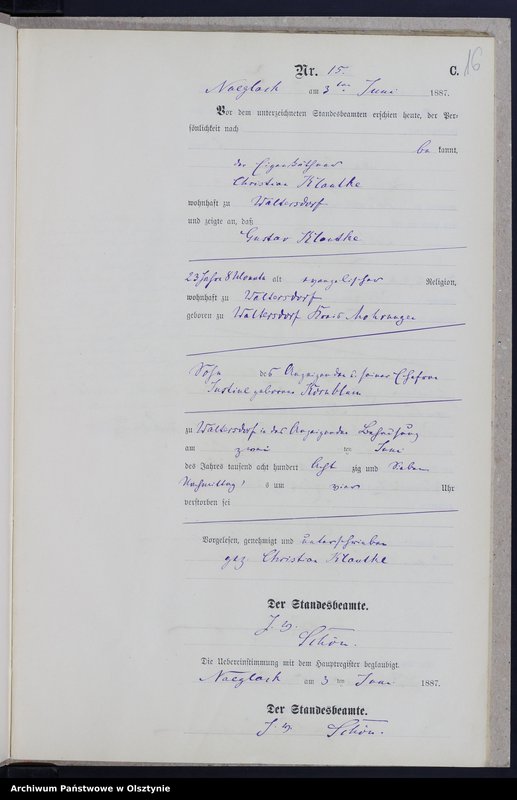 16
Nr. 15. C.
am 3ten Juni 1887.
Vor dem unterzeichneten Standesbeamten erschien heute, der Per-
sönlichkeit nach
be kannt,
der Eigenkäthner
Christian Klautke
wohnhaft zu Waltersdorf
und zeigte an, daß
Gustav Klautke
23 Jahre 8 Monate alt evangelischer Religion,
wohnhaft zu Waltersdorf
geboren zu Waltersdorf Kreis Mohrungen
Sohn des Anzeigenden u. seiner Ehefrau
Justine geborene Kornblum
zu Waltersdorf in des Anzeigenden Behausung
am zwei ten Juni
des Jahres tausend acht hundert acht zig und Sieben
Nachmittag s um vier Uhr
verstorben sei
Vorgelesen, genehmigt und unterschrieben
gez. Christian Klautke
Der Standesbeamte.
Schön.
Die Uebereinstimmung mit dem Hauptregister beglaubigt.
am 3 ten Juni 1887.
Der Standesbeamte.
Schön.
Archiwum Państwowe w Olsztynie